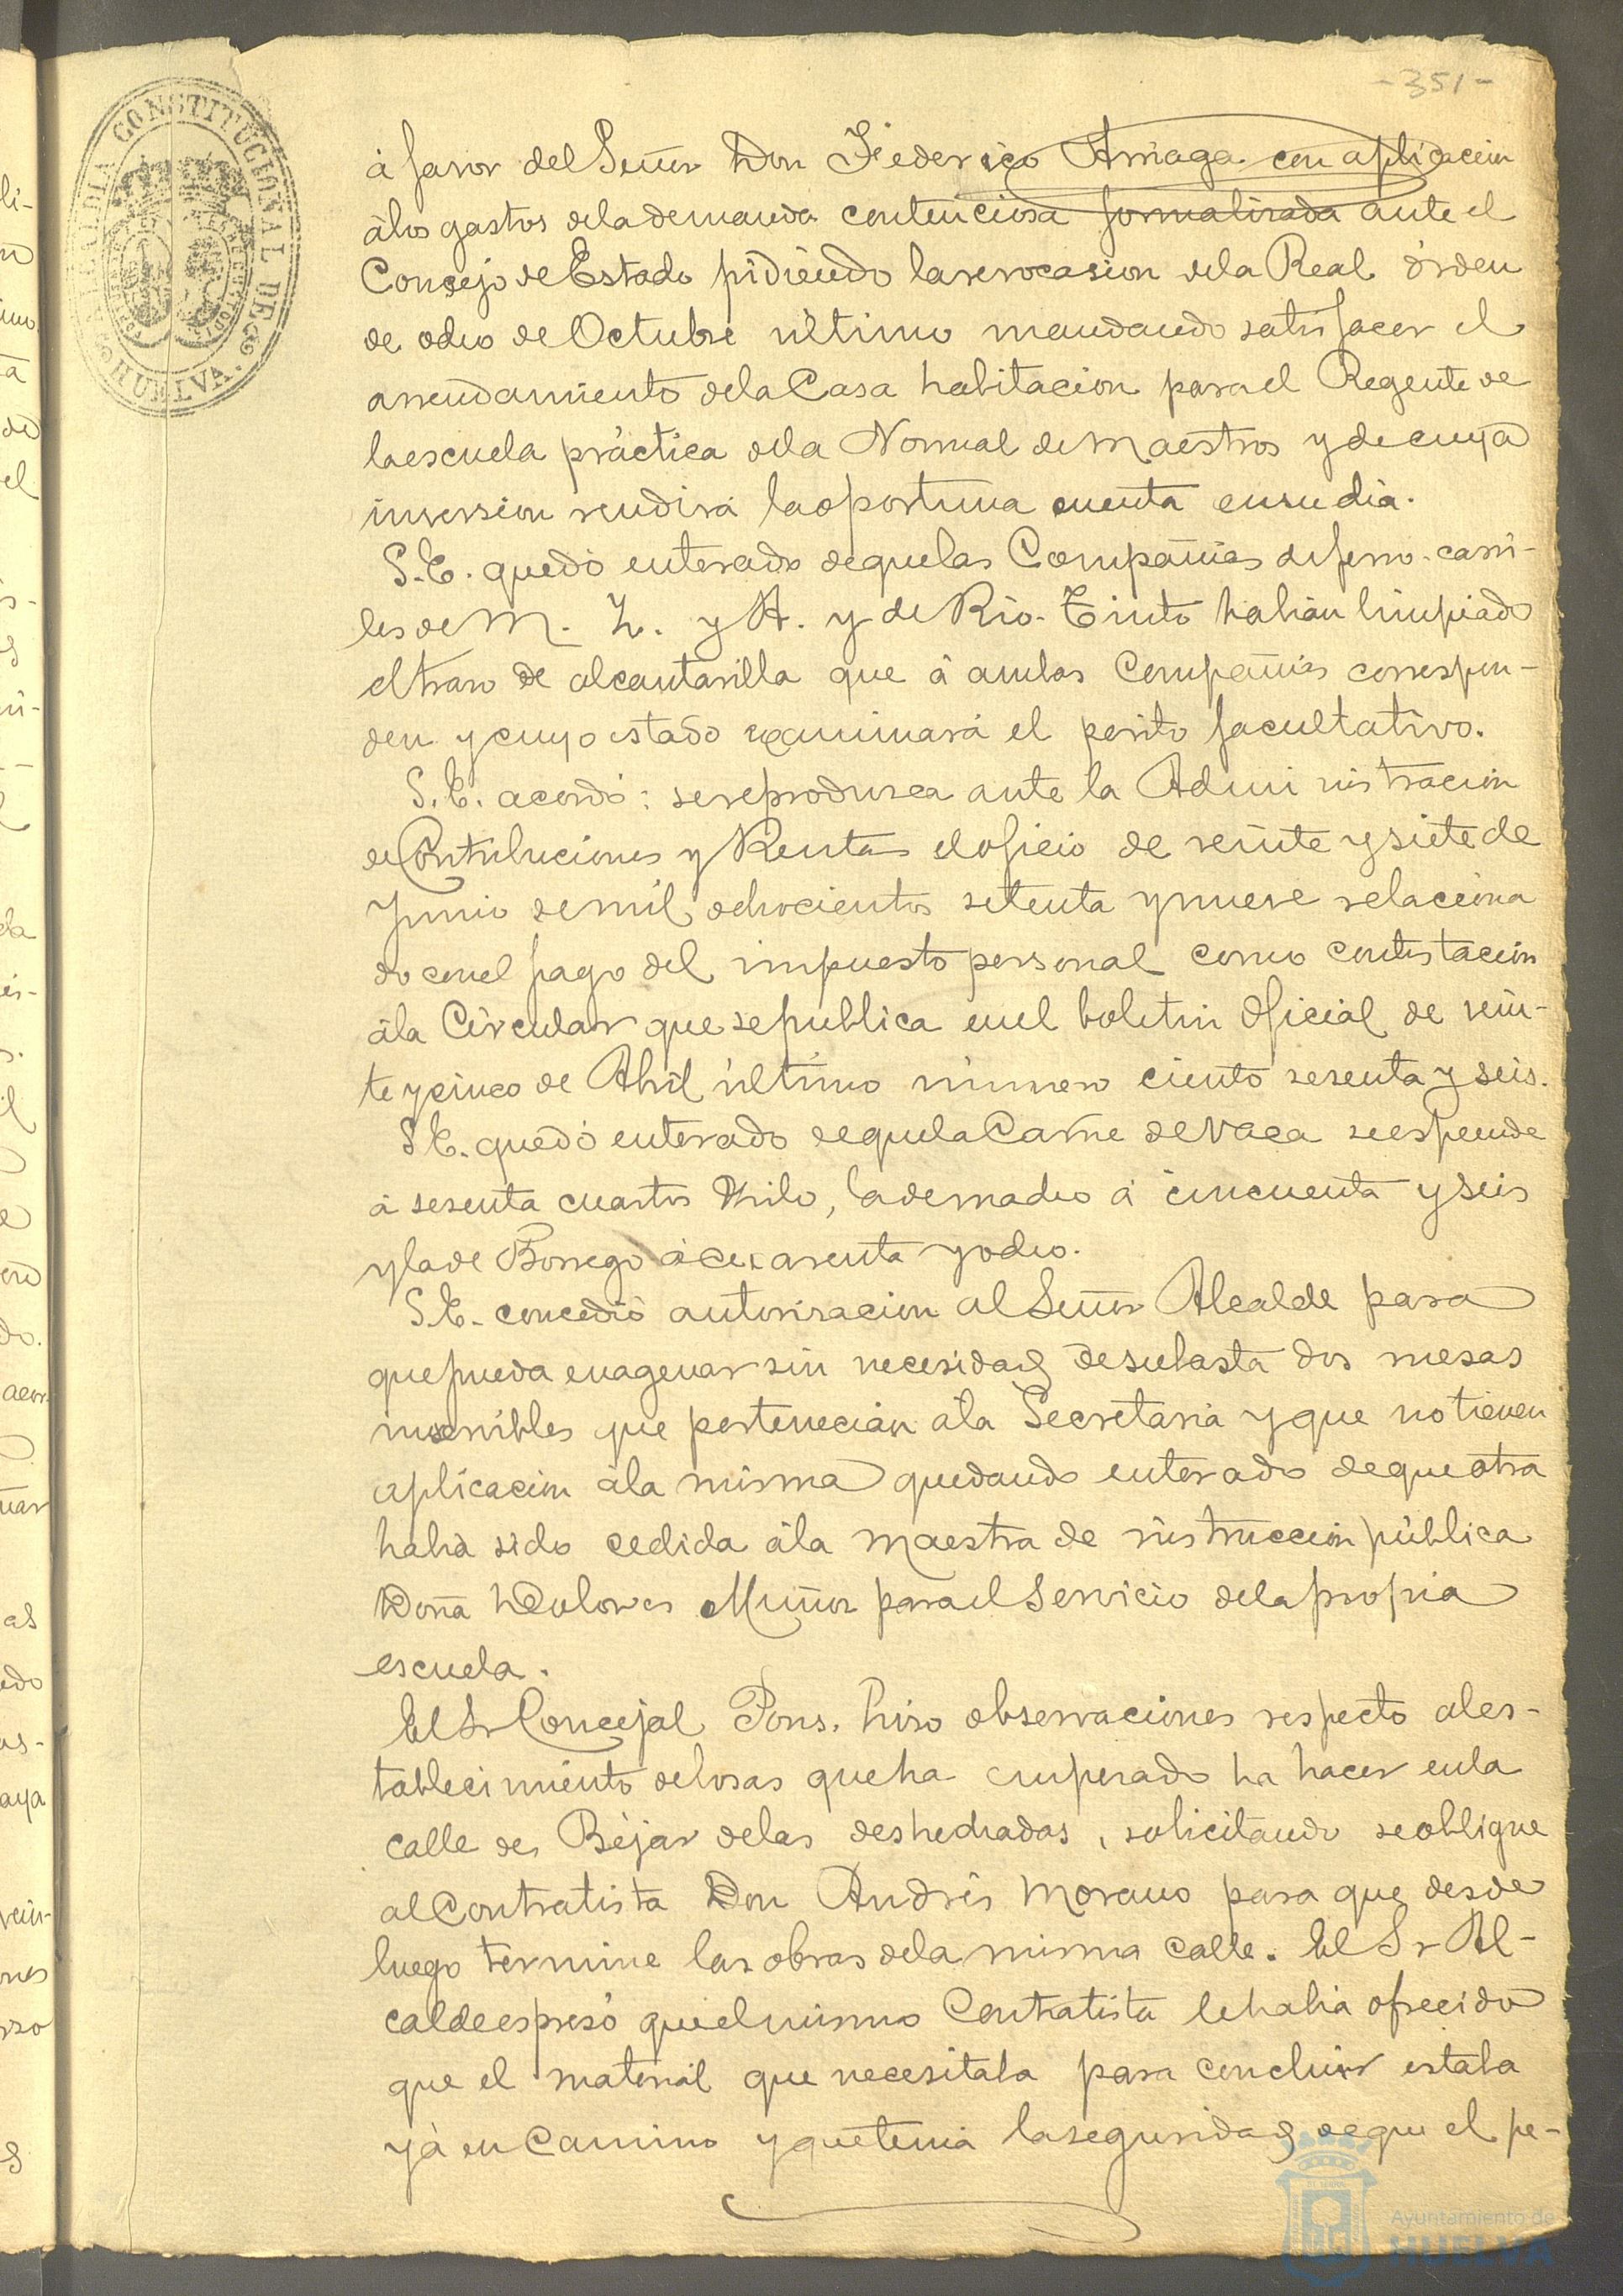 -351-
ALCALDIA CONSTITUCIONAL DE HUELVA.
á favor del Señor Don Federico Arriaga con aplicacion
á los gastos de la demanda contenciosa formalizada ante el
Consejo de Estado pidiendo la revocasion de la Real órden
de ocho de Octubre último mandando satisfacer el
arrendamiento de la Casa habitacion para el Regente de
la escuela práctica de la Normal de Maestros y de cuya
inversion rendirá la oportuna cuenta en su dia.
S.E. quedó enterado de que las Compañias de ferro-carri-
les de M. Z. y A. y de Rio-Tinto habian limpiado
el trazo de alcantarilla que á ambas Compañias correspon-
den y cuyo estado examinará el perito facultativo.
S.E. acordó: se reproduzca ante la Administracion
de Contribuciones y Rentas el oficio de veinte y siete de
Junio de mil ochocientos setenta y nueve relaciona
do con el pago del impuesto personal como contestacion
á la Circular que se publica en el boletin Oficial de vein-
te y cinco de Abril último número ciento sesenta y seis.
S.E. quedó enterado de que la Carne de vaca se espende
á sesenta cuartos Kilo, la de macho á cincuenta y seis
y la de Borrego á cuarenta y ocho.
S.E. concedió autorizacion al Señor Alcalde para
que pueda enagenar sin necesidad de subasta dos mesas
inservibles que pertenecian á la Secretaria y que no tienen
aplicacion á la misma quedando enterado de que otra
habia sido cedida á la Maestra de instruccion pública
Doña Dolores Muñoz para el Servicio de la propia
escuela.
El Sr Concejal Pons, hizo observaciones respecto al es-
tablecimiento de losas que ha empezado ha hacer en la
calle de Béjar de las deshechadas, solicitando se obligue
al Contratista Don Andrés Morano para que desde
luego termine las obras de la misma calle. El Sr Al-
calde espresó que el mismo Contratista le habia ofrecido
que el material que necesitaba para concluir estaba
yá en Camino y que tenia la seguridad de que el pe-
Ayuntamiento de
HUELVA